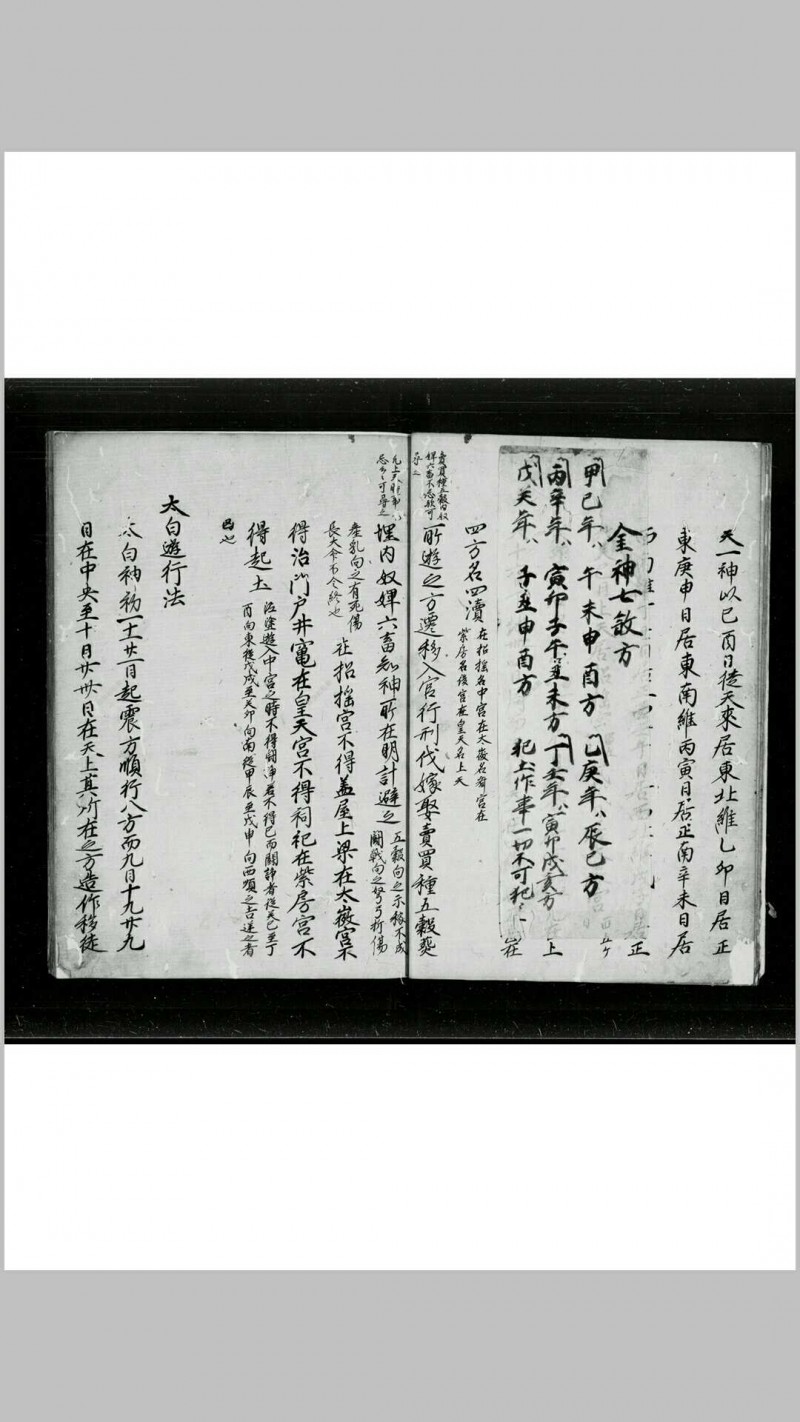 天一神以己酉日從天來居東北維乙卯日居正
東庚申日居東南維丙寅日居正南辛未日居
正
金神七敘方
甲己年〻午未申酉方 乙庚年〻辰巳方
丙辛年〻寅卯子午丑未方 丁壬年〻寅卯戌亥方 上
戊癸年〻子丑申酉方 犯土作事一切不可犯〻 在
四方名四瀆 在招搖名中宮在太微名齊宮在
紫房名後宮在皇天名上天
所遊之方遷移入官行刑伐嫁娶賣買種五穀葬
埋内奴婢六畜知神所在明計避之 五穀向之示稼不成
鬪戰向之弩弓折傷
產乳向之有死傷
長大命不令終也
在招搖宮不得蓋屋上梁在太微宮不
得治門戶井竈在皇天宮不得祠祀在紫房宮不
得起土 治塗遊入中宮之時不得鬪諍若不得已而鬪諍者從癸巳至丁
酉向東從戊戌至癸卯向南從甲辰至戊申向西順之吉逆之者
凶也
太白遊行法
太白神初一十一廿一日起震方順行八方而九日十九廿九
日在中央至十日廿卅日在天上其所在之方造作移徙